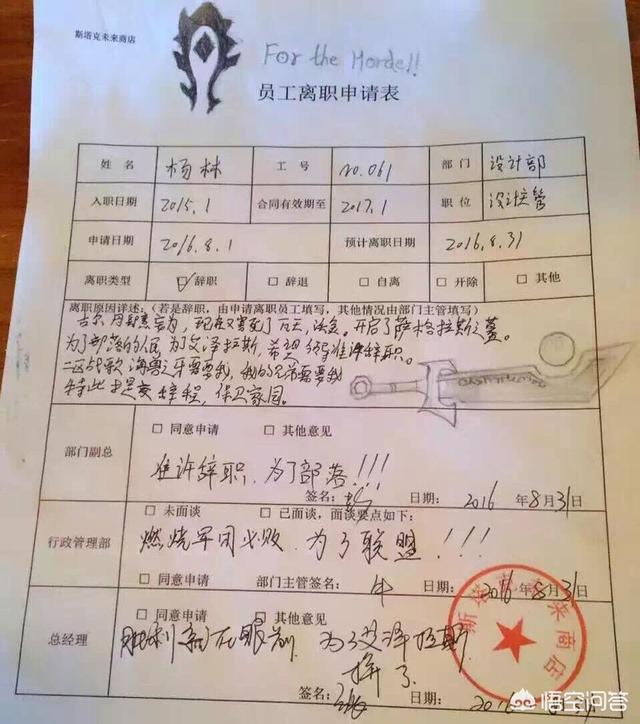 斯塔克未来商店
For the Horde!!
员工离职申请表
姓名 杨林 工号 no.061 部门 设计部
入职日期 2015.1 合同有效期至 2017.1 职位 设计主管
申请日期 2016.8.1 预计离职日期 2016.8.31
离职类型 ☑辞职 □辞退 □自离 □开除 □其他
离职原因详述:(若是辞职,由申请离职员工填写,其他情况由部门主管填写)
古尔丹 现在又害死了 开启了萨格拉斯之墓。
为了部落的 为了艾泽拉斯,希望领导准许辞职。
二区战歌 海兽之牙需要我,我的兄弟需要我
特此提交辞程,保卫家园。
部门副总
□ 同意申请 □ 其他意见
准许辞职、为了部落!!!
签名: 日期: 2016 年 8 月 31 日
行政管理部
□ 未面谈 □ 已面谈,面谈要点如下:
燃烧军团必败、为了联盟!!!
□ 同意申请 部门主管签名: 日期: 2016 年 8 月 31 日
总经理
□ 同意申请 □ 其他意见
胜利就在眼前、为了艾泽拉斯、
拼了
签名: 日期:
斯塔克未来商店
悟空问答